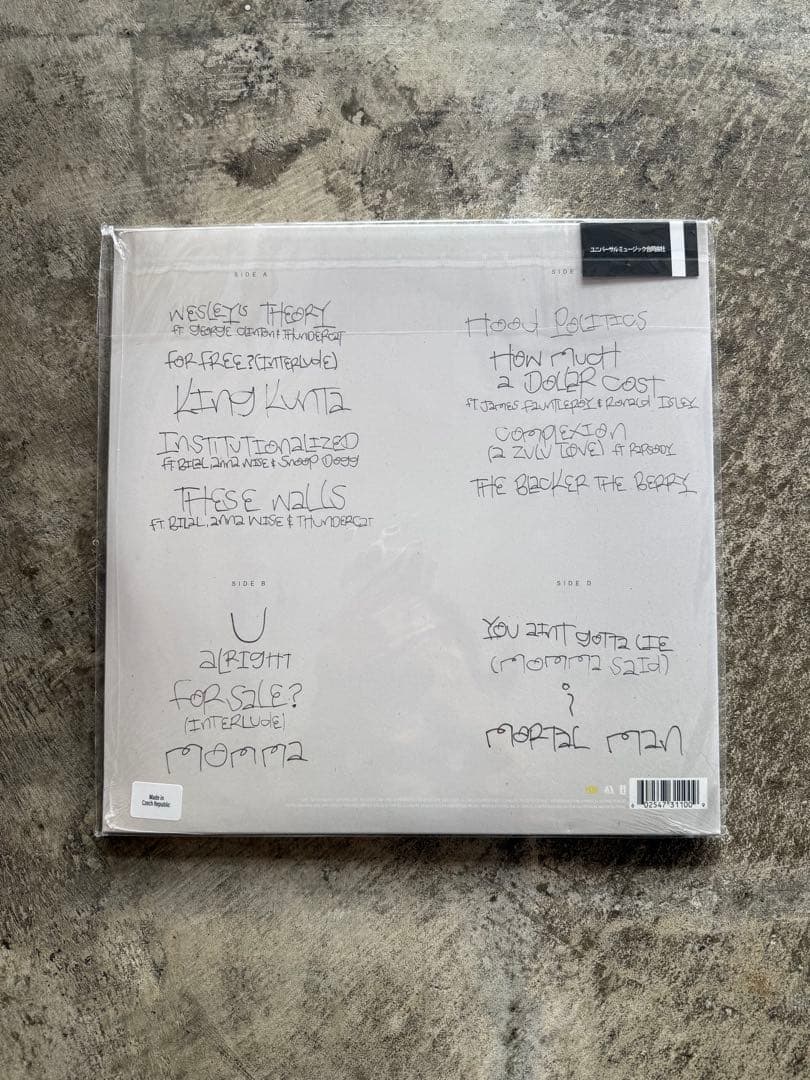 SIDE A
WESLEY'S THEORY
ft. GEORGE CLINTON & THUNDERCAT
FOR FREE? (INTERLUDE)
KING KUNTA
INSTITUTIONALIZED
ft. BILAL, anna WISE & Snoop Dogg
THESE WALLS
FT. BILAL, anna WISE & THUNDERCAT
SIDE B
U
alRIGHT
FOR SALE?
(INTERLUDE)
MOMMA
Made in
Czech Republic
ユニバーサルミュージック合同会社
SIDE
HOOD POLITICS
HOW MUCH
a DOLLAR COST
ft. JAMES FAUNTLEROY & RONALD ISLEY
COMPLEXION
(a ZULU LOVE) ft RAPSODY
THE BLACKER THE BERRY
SIDE D
YOU AINT GOTTA LIE
(MOMMA SAID)
i
MORTAL MAN
6 02547 31100 9